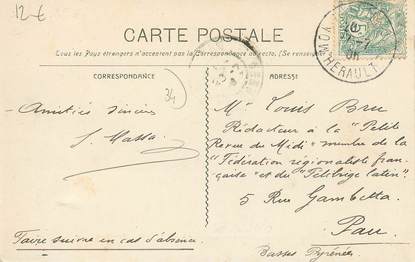 12-€
CARTE POSTALE
Tous les Pays étrangers n'acceptent pas la Correspondance au recto. (Se renseigner
CORRESPONDANCE
ADRESSE
34
HERAULT
Amitiés sincères
Mr Louis Bru
Rédacteur à la "Petite
Revue du Midi" membre de la
"Fédération régionaliste fran-
çaise" et du "Félibrige latin".
5 Rue Gambetta
Pau
Basses Pyrénées
Faire suivre en cas d'absence